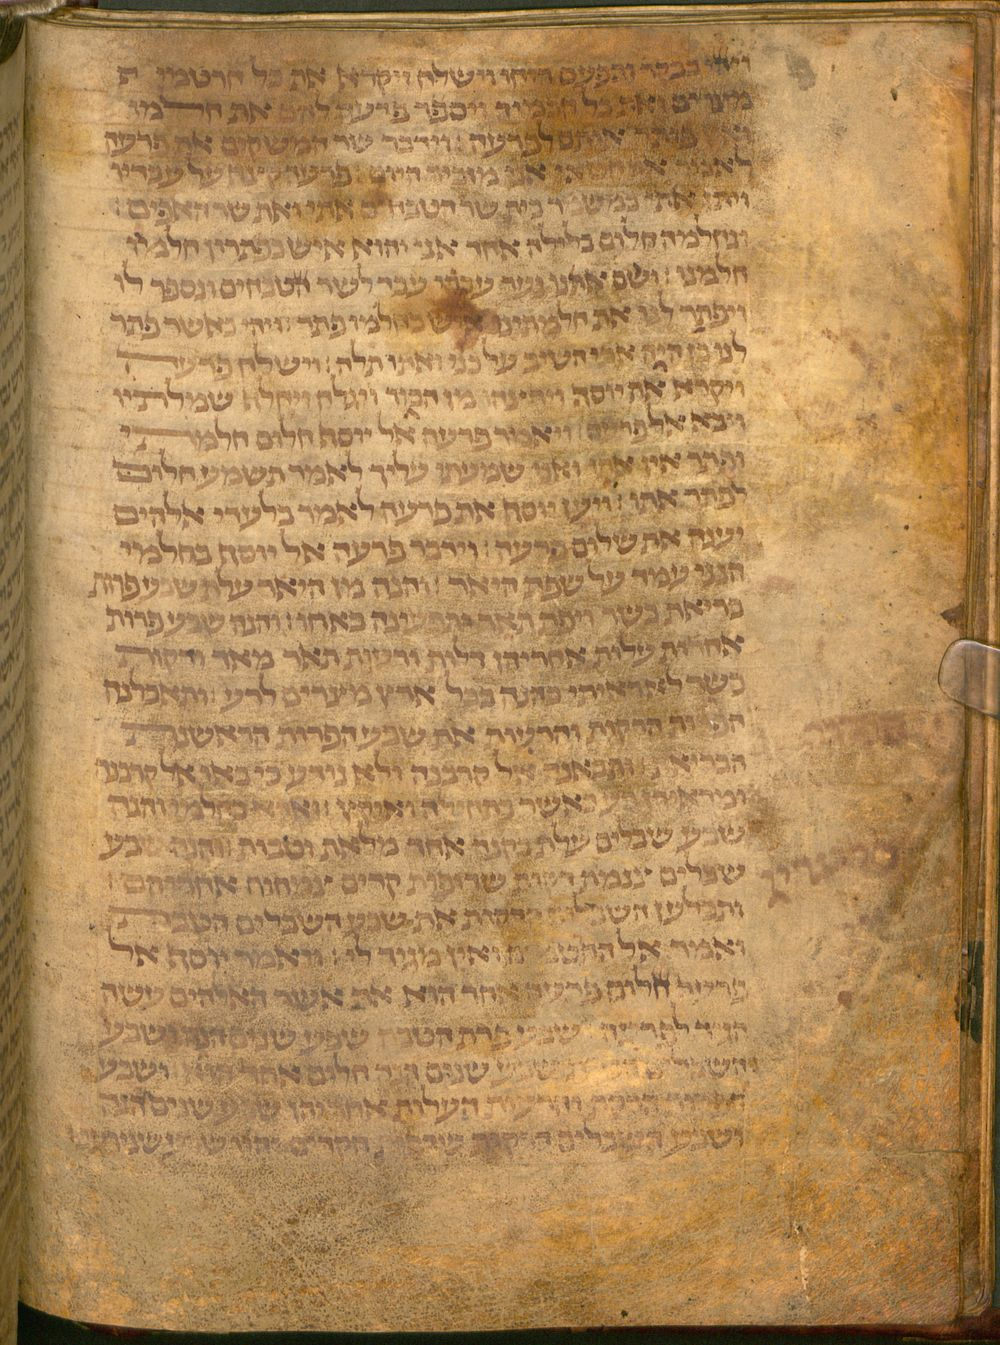 ויהי בבקר ותפעם רוחו וישלח ויקרא את כל חרטמי
מצרים ואת כל חכמיה ויספר פרעה להם את חלמו
ואין פותר אותם לפרעה : וידבר שר המשקים את פרעה
לאמר את חטאי אני מזכיר היום : פרעה קצף על עבדיו
ויתן אתי במשמר בית שר הטבחים אתי ואת שר האפים :
ונחלמה חלום בלילה אחד אני והוא איש כפתרון חלמו
חלמנו : ושם אתנו נער עברי עבד לשר הטבחים ונספר לו
ויפתר לנו את חלמתינו איש כחלמו פתר : ויהי כאשר פתר
לנו כן היה אתי השיב על כני ואתו תלה : וישלח פרעה
ויקרא את יוסף ויריצהו מן הבור ויגלח ויחלף שמלתיו
ויבא אל פרעה : ויאמר פרעה אל יוסף חלום חלמתי
ופתר אין אתו ואני שמעתי עליך לאמר תשמע חלום
לפתר אתו : ויען יוסף את פרעה לאמר בלעדי אלהים
יענה את שלום פרעה : וידבר פרעה אל יוסף בחלמי
הנני עמד על שפת היאר : והנה מן היאר עלת שבע פרות
בריאת בשר ויפת תאר ותרעינה באחו : והנה שבע פרות
אחרות עלות אחריהן דלות ורעות תאר מאד ורקות
בשר לא ראיתי כהנה בכל ארץ מצרים לרע : ותאכלנה
הפרות הרקות והרעות את שבע הפרות הראשנת
הבריאת : ותבאנה אל קרבנה ולא נודע כי באו אל קרבנה
ומראיהן רע כאשר בתחלה ואיקץ : וארא בחלמי והנה
שבע שבלים עלת בקנה אחד מלאת וטבות : והנה שבע
שבלים צנמת דקות שדופות קדים צמחות אחריהם :
ותבלען השבלים הדקות את שבע השבלים הטבות
ואמר אל החרטמים ואין מגיד לי : ויאמר יוסף אל
פרעה חלום פרעה אחד הוא את אשר האלהים עשה
הגיד לפרעה : שבע פרת הטבת שבע שנים הנה ושבע
השבלים הטבת שבע שנים הנה חלום אחד הוא : ושבע
הפרות הרקות והרעות העלות אחריהן שבע שנים הנה
ושבע השבלים הרקות שדפות הקדים יהיו שבע שני רעב :